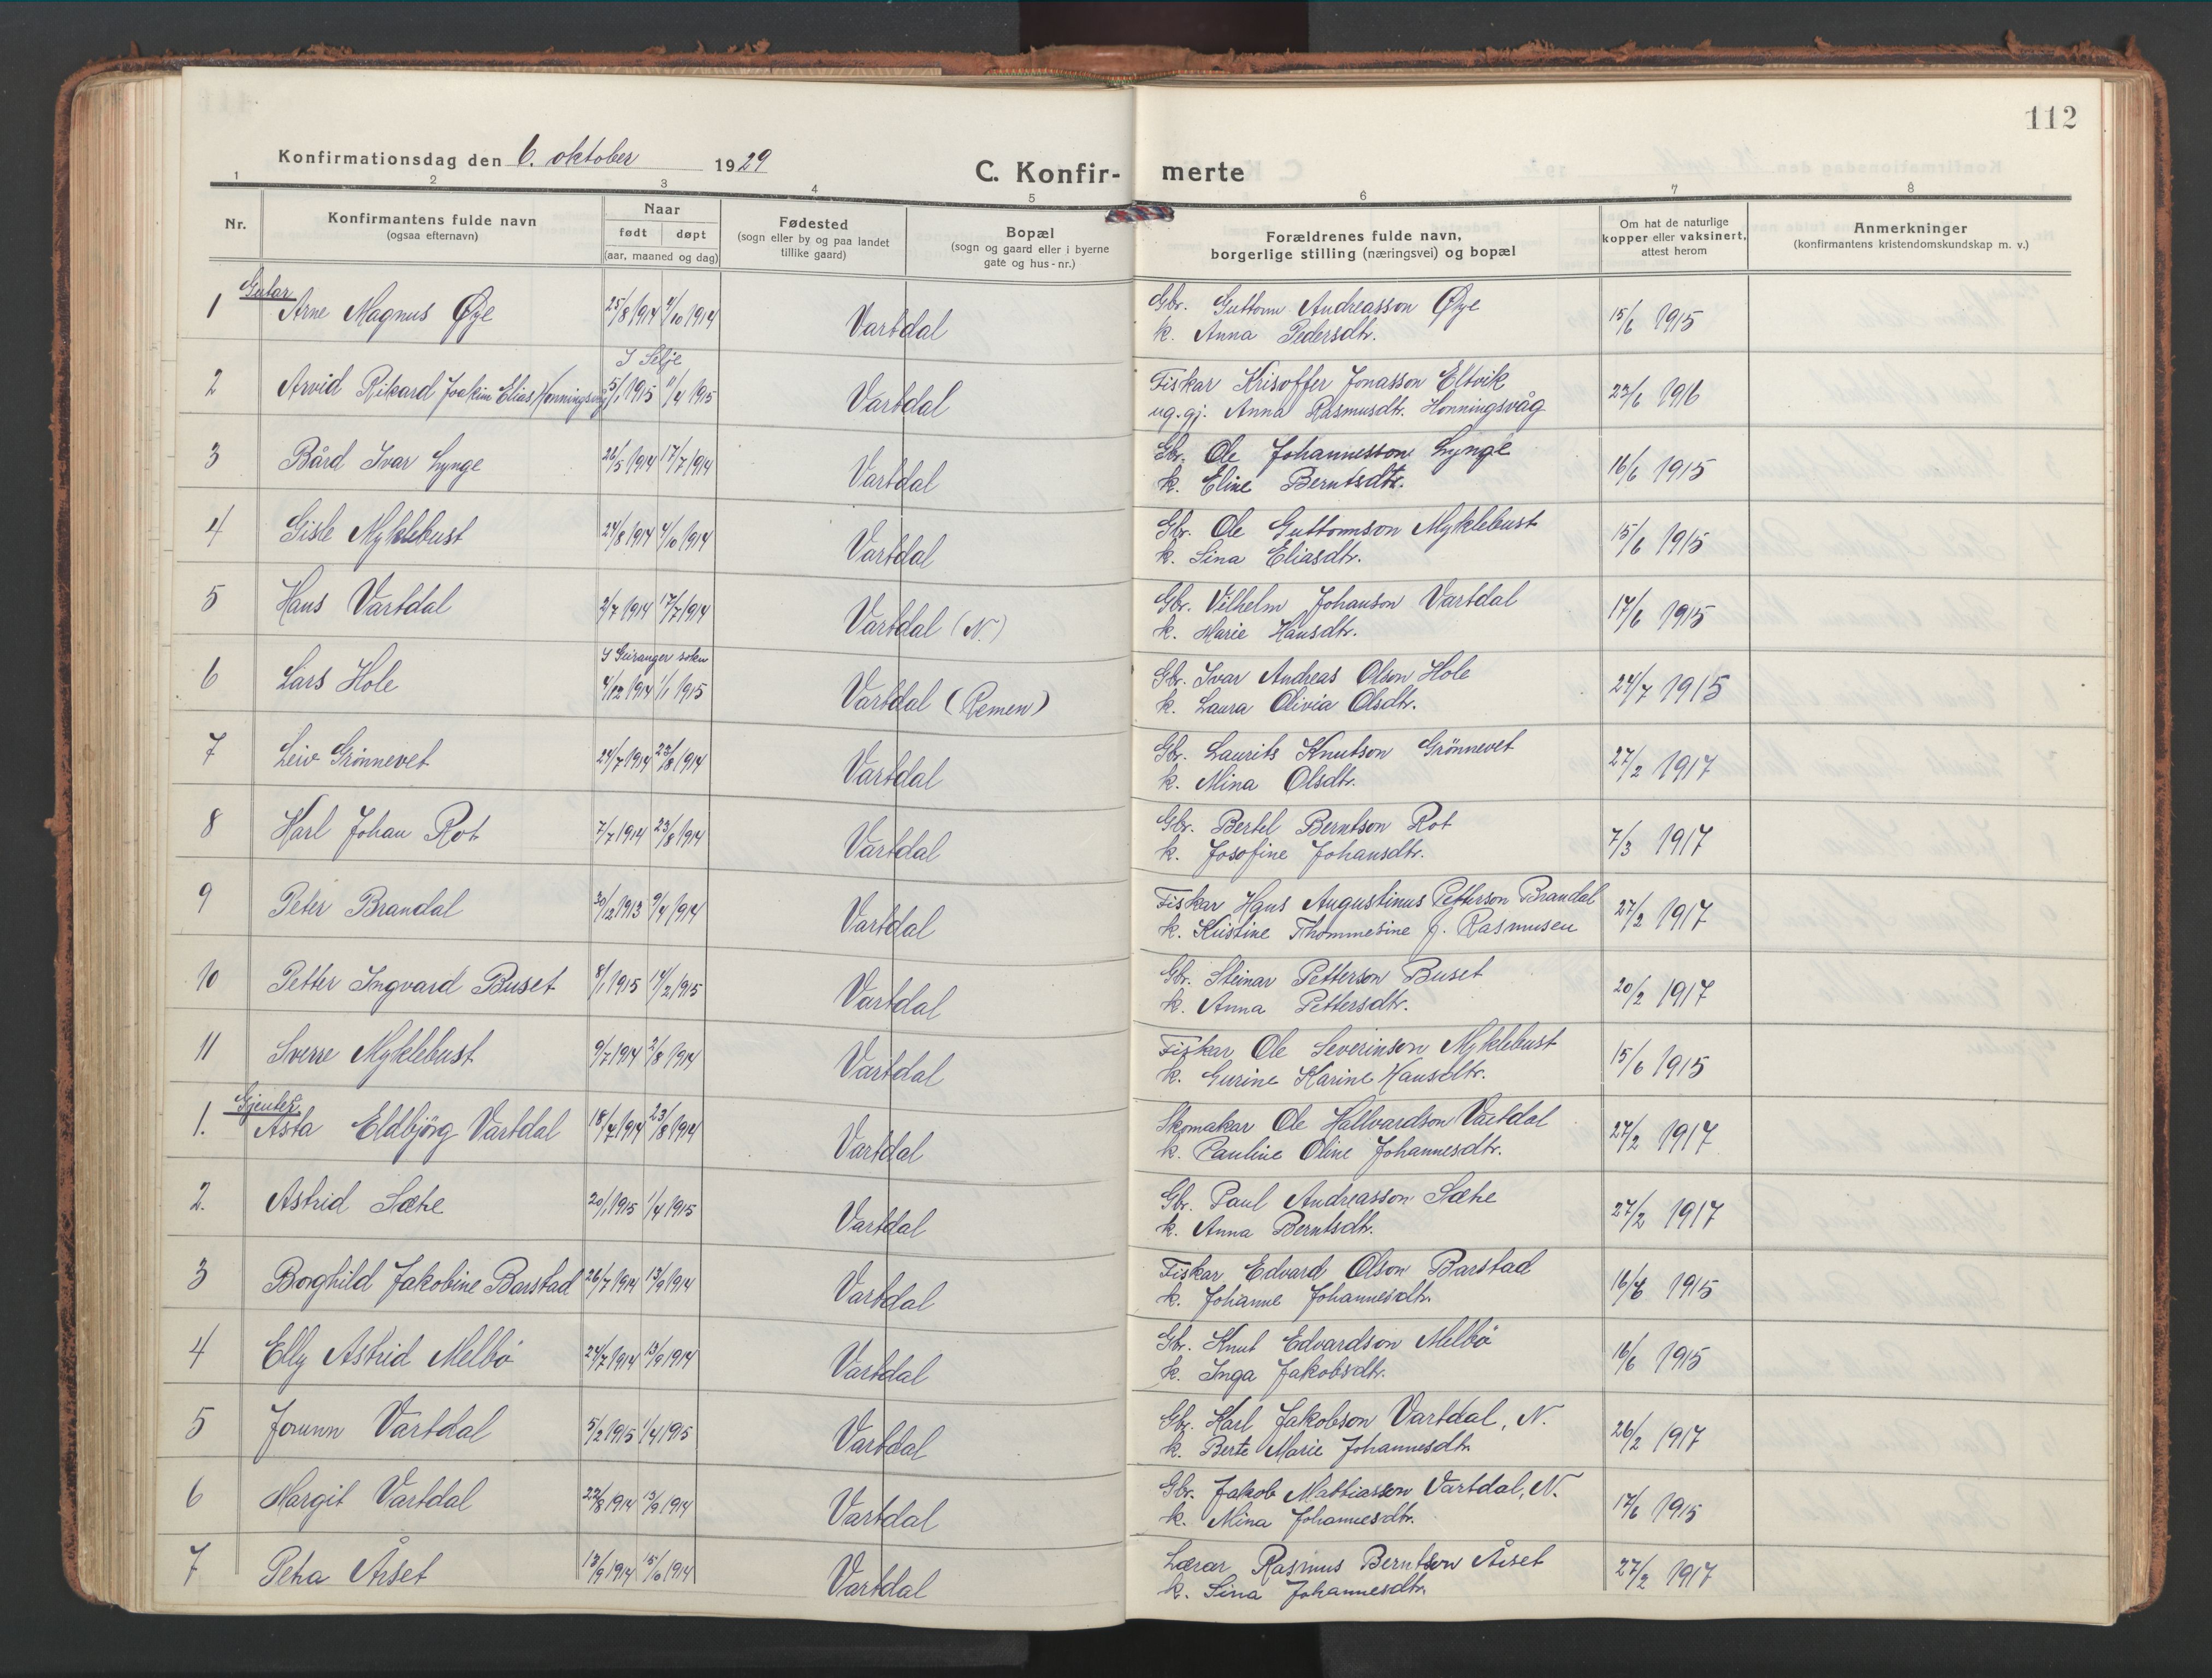 112
Konfirmationsdag den 6. oktober 1929
C. Konfir- merte
1 2 3 4 5 6 7 8
Nr.
Konfirmantens fulde navn
(ogsaa efternavn)
Naar
født døpt
(aar, maaned og dag)
Fødested
(sogn eller by og paa landet
tillike gaard)
Bopæl
(sogn og gaard eller i byerne
gate og hus-nr.)
Forældrenes fulde navn,
borgerlige stilling (næringsvei) og bopæl
Om hat de naturlige
kopper eller vaksinert,
attest herom
Anmerkninger
(konfirmantens kristendomskundskap m. v.)
Gutar
1 Arne Magnus Øye 25/8 1914 4/10 1914 Vartdal Gbr. Guttorm Andreasson Øye 15/6 1915
k. Anna Pedersdtr.
I Selje
2 Arvid Rikard Joakim Elias Honningsvåg 5/1 1915 11/4 1915 Vartdal Fiskar Krisoffer Jonasson Eltvik 23/6 1916
ug. gj. Anna Rasmusdtr. Honningsvåg
3 Bård Ivar Lynge 26/5 1914 17/7 1914 Vartdal Gbr. Ole Johannesson Lynge 16/6 1915
k. Eline Berntsdtr.
4 Gisle Myklebust 24/8 1914 4/10 1914 Vartdal Gbr. Ole Guttormson Myklebust 15/6 1915
k. Sina Eliasdtr.
5 Hans Vartdal 2/7 1914 17/7 1914 Vartdal (N.) Gbr. Vilhelm Johanson Vartdal 17/6 1915
k. Marie Hansdtr.
I Geiranger sokn
6 Lars Hole 4/12 1914 1/1 1915 Vartdal (Remen) Gbr. Ivar Andreas Olson Hole 24/7 1915
k. Laura Olivia Olsdtr.
7 Leiv Grönnevet 24/7 1914 23/8 1914 Vartdal Gbr. Laurits Knutson Grönnevet 27/2 1917
k. Mina Olsdtr.
8 Karl Johan Rot 7/7 1914 23/8 1914 Vartdal Gbr. Bertel Berntson Rot 7/3 1917
k. Josofine Johansdtr.
9 Peter Brandal 30/12 1913 9/4 1914 Vartdal Fiskar Hans Augustinus Petterson Brandal 27/2 1917
k. Kristine Thommesine f. Rasmusen
10 Petter Ingvard Buset 8/1 1915 14/2 1915 Vartdal Gbr. Steinar Petterson Buset 20/2 1917
k. Anna Pettersdtr.
11 Sverre Myklebust 9/7 1914 2/8 1914 Vartdal Fiskar Ole Severinson Myklebust 15/6 1915
k. Gurine Karine Hansdtr.
Gjenter
1. Asta Eldbjörg Vartdal 18/7 1914 23/8 1914 Vartdal Skomakar Ole Hallvardson Vartdal 27/2 1917
k. Pauline Oline Johannesdtr.
2. Astrid Sæte 20/1 1915 1/4 1915 Vartdal Gbr. Paul Andreasson Sæte 27/2 1917
k. Anna Berntsdtr.
3 Borghild Jakobine Barstad 26/7 1914 13/9 1914 Vartdal Fiskar Edvard Olson Barstad 16/6 1915
k. Johanne Johannesdtr.
4 Elly Astrid Melbö 24/7 1914 13/9 1914 Vartdal Gbr. Knut Edvardson Melbö 16/6 1915
k. Inga Jakobsdtr.
5 Jorunn Vartdal 5/2 1915 1/4 1915 Vartdal Gbr. Karl Jakobson Vartdal, N. 26/2 1917
k. Berte Marie Johannesdtr.
6 Margit Vartdal 22/8 1914 13/9 1914 Vartdal Gbr. Jakob Mattiasson Vartdal, N. 17/6 1915
k. Mina Johannesdtr.
7 Petra Årset 13/9 1914 15/10 1914 Vartdal Lærar Rasmus Berntson Årset 27/2 1917
k. Sina Johannesdtr.